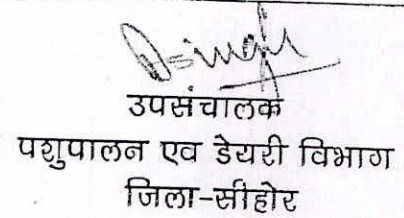 उपसंचालक
पशुपालन एव डेयरी विभाग
जिला-सीहोर